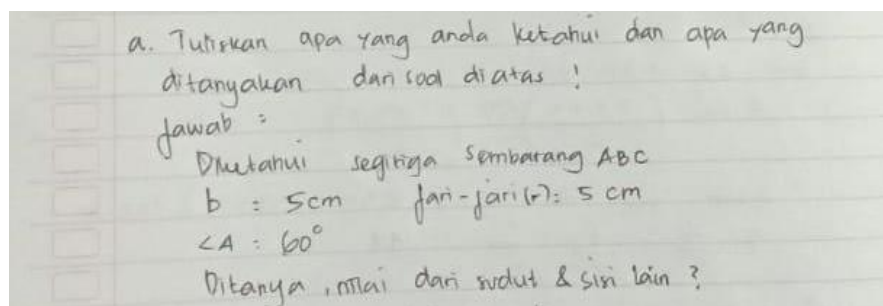 a. Tuliskan apa yang anda ketahui dan apa yang
ditanyakan dari soal diatas !
Jawab :
Diketahui segitiga sembarang ABC
b : 5cm Jari-jari (r) : 5 cm
∠A : 60°
Ditanya, nilai dari sudut & sisi lain ?